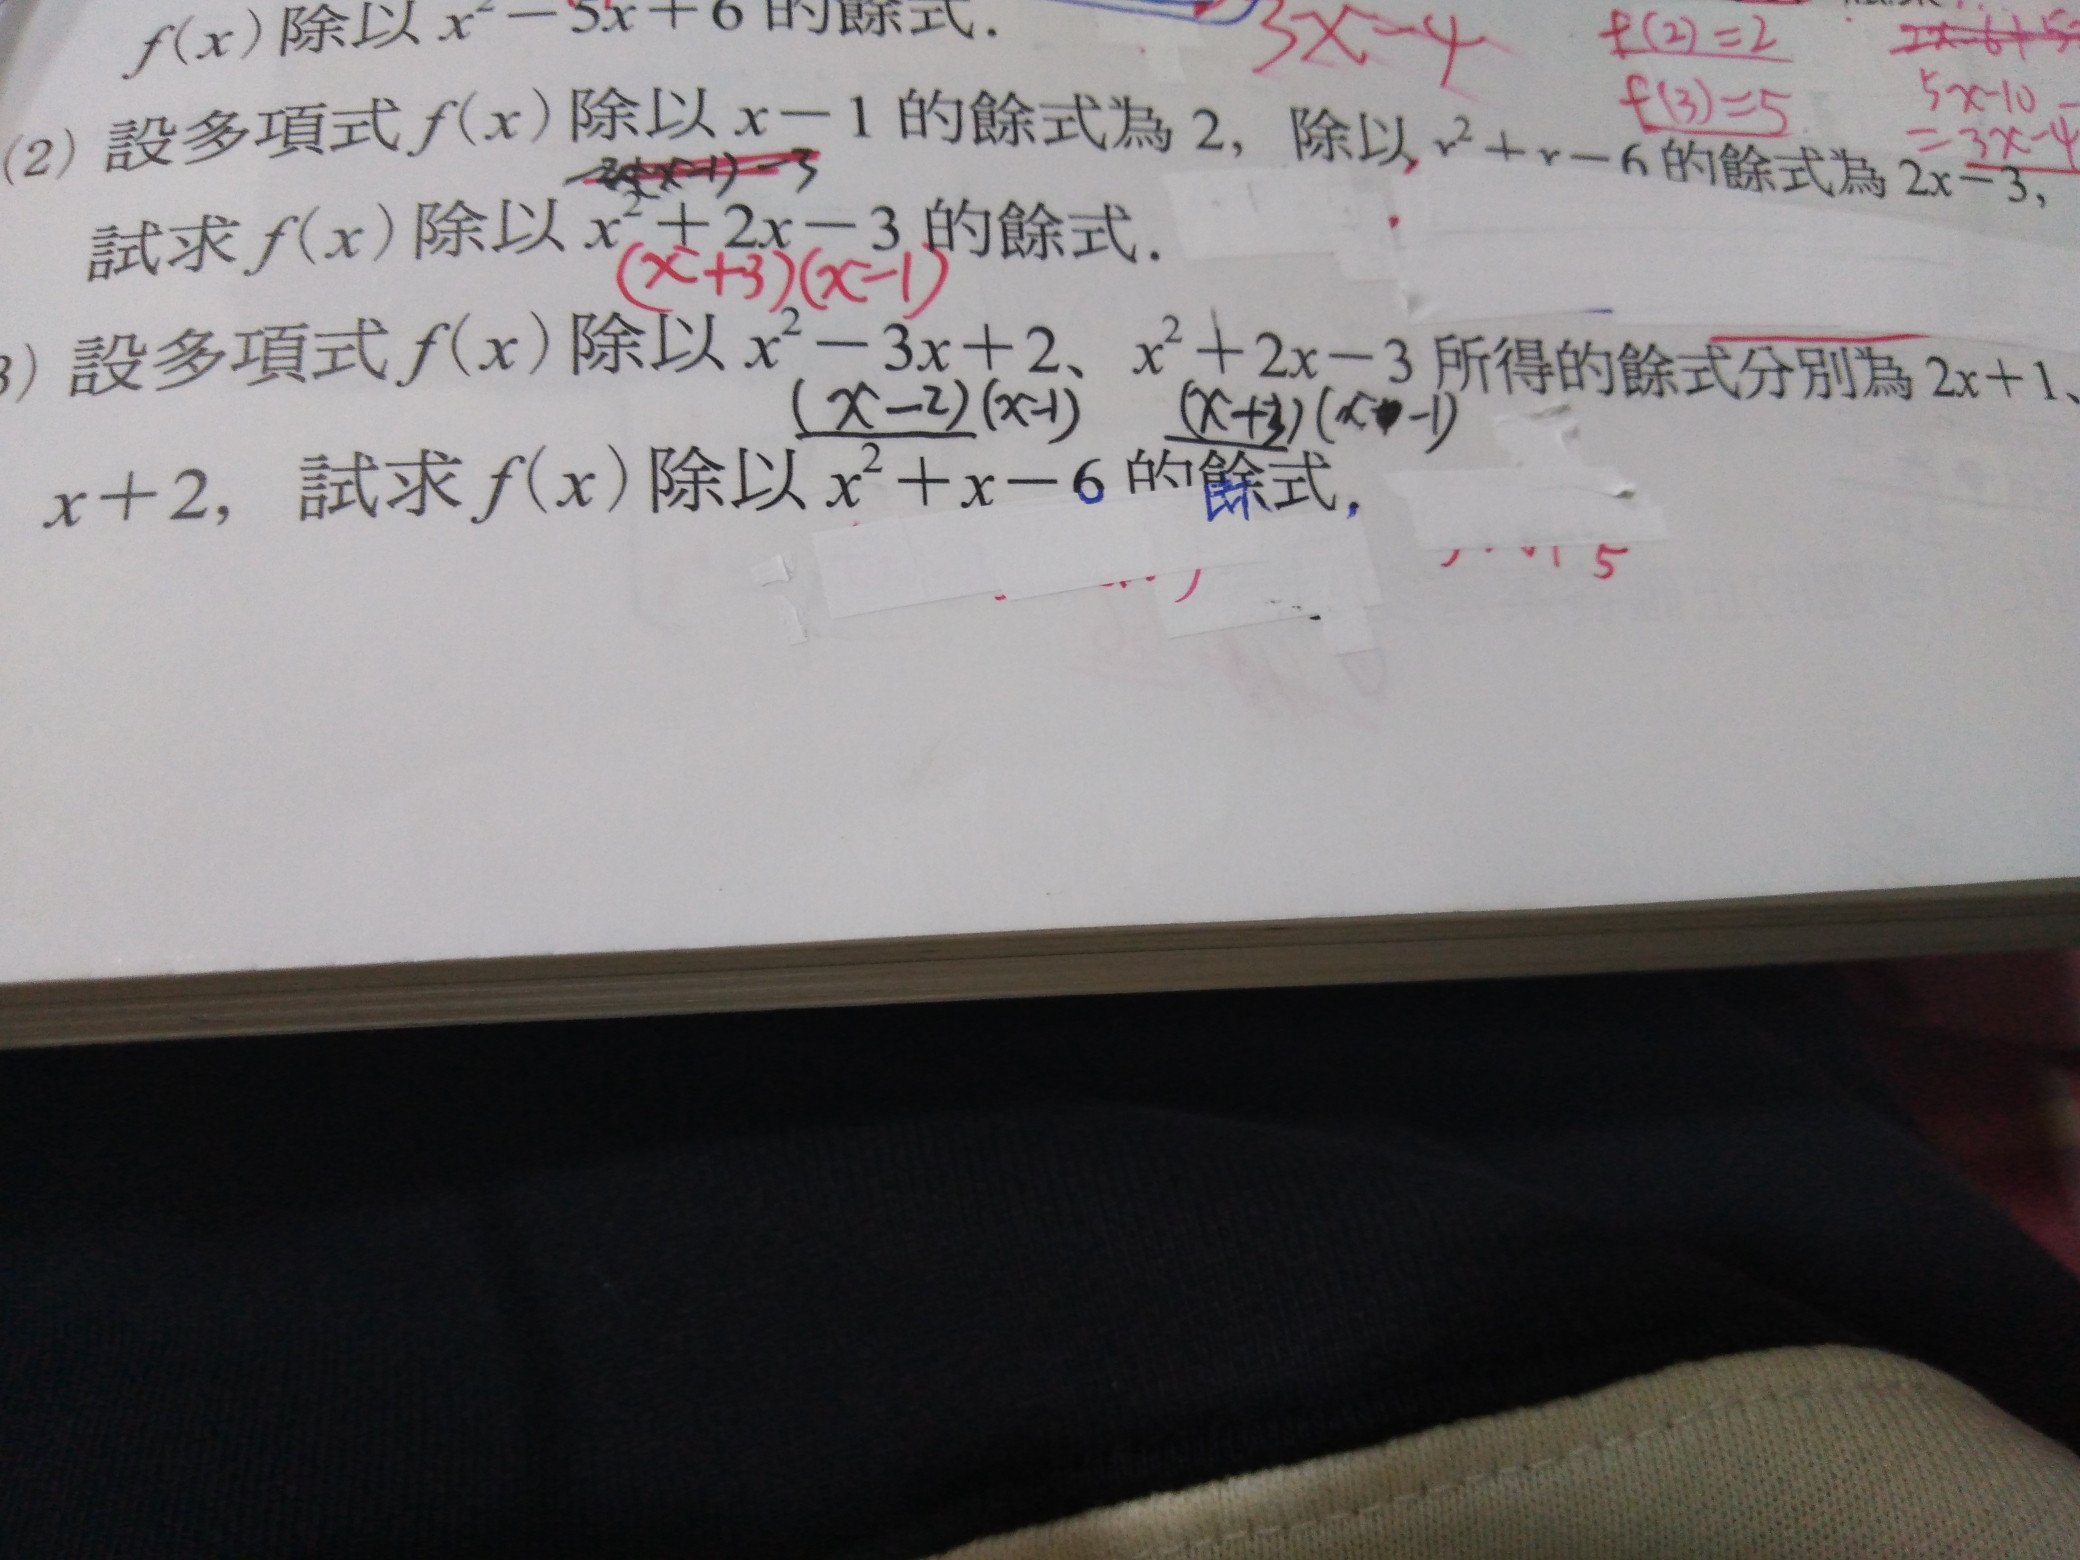 f(x)除以 x²−5x+6 的餘式.
3x−4
f(2)=2
f(3)=5
5x−10
=3x−4
(2) 設多項式 f(x) 除以 x−1 的餘式為 2, 除以 x²+x−6 的餘式為 2x−3,
試求 f(x) 除以 x²+2x−3 的餘式.
(x+3)(x−1)
3) 設多項式 f(x) 除以 x²−3x+2、x²+2x−3 所得的餘式分別為 2x+1、
(x−2)(x−1) (x+3)(x−1)
x+2, 試求 f(x) 除以 x²+x−6 的餘式,
5